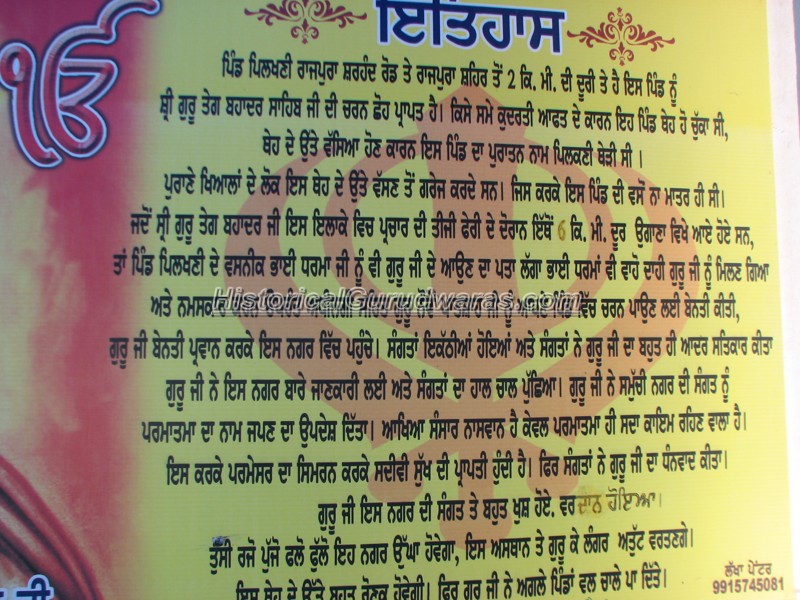 ੴ
ਇਤਿਹਾਸ
ਪਿੰਡ ਪਿਲਖਣੀ ਰਾਜਪੁਰਾ ਸ਼ਰਹੰਦ ਰੋਡ ਤੇ ਰਾਜਪੁਰਾ ਸ਼ਹਿਰ ਤੋਂ 2 ਕਿ. ਮੀ. ਦੀ ਦੂਰੀ ਤੇ ਹੈ ਇਸ ਪਿੰਡ ਨੂੰ
ਸ਼੍ਰੀ ਗੁਰੂ ਤੇਗ ਬਹਾਦਰ ਸਾਹਿਬ ਜੀ ਦੀ ਚਰਨ ਛੋਹ ਪ੍ਰਾਪਤ ਹੈ। ਕਿਸੇ ਸਮੇ ਕੁਦਰਤੀ ਆਫਤ ਦੇ ਕਾਰਨ ਇਹ ਪਿੰਡ ਥੇਹ ਹੋ ਚੁੱਕਾ ਸੀ,
ਥੇਹ ਦੇ ਉਤੇ ਵੱਸਿਆ ਹੋਣ ਕਾਰਨ ਇਸ ਪਿੰਡ ਦਾ ਪੁਰਾਤਨ ਨਾਮ ਪਿਲਕਣੀ ਥੇੜੀ ਸੀ ।
ਪੁਰਾਣੇ ਖਿਆਲਾਂ ਦੇ ਲੋਕ ਇਸ ਥੇਹ ਦੇ ਉਤੇ ਵੱਸਣ ਤੋਂ ਗਰੇਜ ਕਰਦੇ ਸਨ। ਜਿਸ ਕਰਕੇ ਇਸ ਪਿੰਡ ਦੀ ਵਸੋਂ ਨਾ ਮਾਤਰ ਹੀ ਸੀ।
ਜਦੋਂ ਸ੍ਰੀ ਗੁਰੂ ਤੇਗ ਬਹਾਦਰ ਜੀ ਇਸ ਇਲਾਕੇ ਵਿਚ ਪ੍ਰਚਾਰ ਦੀ ਤੀਜੀ ਫੇਰੀ ਦੇ ਦੋਰਾਨ ਇੱਥੋਂ 6 ਕਿ. ਮੀ. ਦੂਰ ਉਗਾਣਾ ਵਿਖੇ ਆਏ ਹੋਏ ਸਨ,
ਤਾਂ ਪਿੰਡ ਪਿਲਖਣੀ ਦੇ ਵਸਨੀਕ ਭਾਈ ਧਰਮਾ ਜੀ ਨੂੰ ਵੀ ਗੁਰੂ ਜੀ ਦੇ ਆਉਣ ਦਾ ਪਤਾ ਲੱਗਾ ਭਾਈ ਧਰਮਾਂ ਵੀ ਵਾਹੋ ਦਾਹੀ ਗੁਰੂ ਜੀ ਨੂੰ ਮਿਲਣ ਗਿਆ
HistoricalGurudwaras.com
ਅਤੇ ਵਿੱਚ ਚਰਨ ਪਾਉਣ ਲਈ ਬੇਨਤੀ ਕੀਤੀ,
ਗੁਰੂ ਜੀ ਬੇਨਤੀ ਪ੍ਰਵਾਨ ਕਰਕੇ ਇਸ ਨਗਰ ਵਿੱਚ ਪਹੁੰਚੇ। ਸੰਗਤਾਂ ਇਕੱਠੀਆਂ ਹੋਇਆਂ ਅਤੇ ਸੰਗਤਾਂ ਨੇ ਗੁਰੂ ਜੀ ਦਾ ਬਹੁਤ ਹੀ ਆਦਰ ਸਤਿਕਾਰ ਕੀਤਾ
ਗੁਰੂ ਜੀ ਨੇ ਇਸ ਨਗਰ ਬਾਰੇ ਜਾਣਕਾਰੀ ਲਈ ਅਤੇ ਸੰਗਤਾਂ ਦਾ ਹਾਲ ਚਾਲ ਪੁੱਛਿਆ। ਗੁਰੂ ਜੀ ਨੇ ਸਮੁੱਚੀ ਨਗਰ ਦੀ ਸੰਗਤ ਨੂੰ
ਪਰਮਾਤਮਾ ਦਾ ਨਾਮ ਜਪਣ ਦਾ ਉਪਦੇਸ਼ ਦਿੱਤਾ। ਆਖਿਆ ਸੰਸਾਰ ਨਾਸਵਾਨ ਹੈ ਕੇਵਲ ਪਰਮਾਤਮਾ ਹੀ ਸਦਾ ਕਾਇਮ ਰਹਿਣ ਵਾਲਾ ਹੈ।
ਇਸ ਕਰਕੇ ਪਰਮੇਸਰ ਦਾ ਸਿਮਰਨ ਕਰਕੇ ਸਦੀਵੀ ਸੁੱਖ ਦੀ ਪ੍ਰਾਪਤੀ ਹੁੰਦੀ ਹੈ। ਫਿਰ ਸੰਗਤਾਂ ਨੇ ਗੁਰੂ ਜੀ ਦਾ ਧੰਨਵਾਦ ਕੀਤਾ।
ਗੁਰੂ ਜੀ ਇਸ ਨਗਰ ਦੀ ਸੰਗਤ ਤੇ ਬਹੁਤ ਖੁਸ਼ ਹੋਏ. ਵਰਦਾਨ ਹੋਇਆ।
ਤੁਸੀ ਰਜੋ ਪੁੱਜੋ ਫਲੋ ਫੁੱਲੋ ਇਹ ਨਗਰ ਉੱਘਾ ਹੋਵੇਗਾ, ਇਸ ਅਸਥਾਨ ਤੇ ਗੁਰੂ ਕੇ ਲੰਗਰ ਅਤੁੱਟ ਵਰਤਣਗੇ।
ਇਸ ਥੇਹ ਦੇ ਉੱਤੇ ਬਹੁਤ ਰੌਣਕ ਹੋਵੇਗੀ। ਫਿਰ ਗੁਰੂ ਜੀ ਨੇ ਅਗਲੇ ਪਿੰਡਾਂ ਵਲ ਚਾਲੇ ਪਾ ਦਿੱਤੇ।
ਲੱਖਾ ਪੇਂਟਰ
9915745081